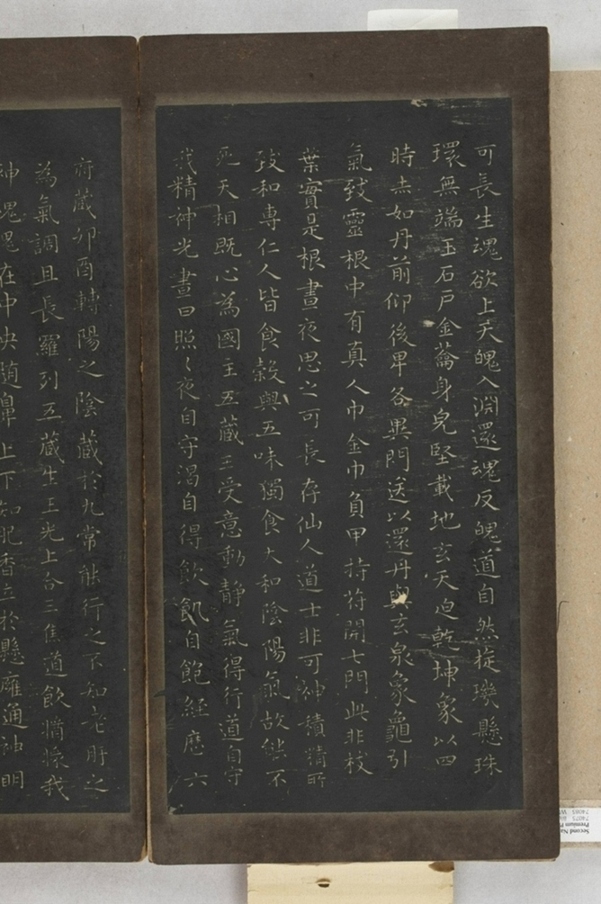 可長生魂欲上天魄入淵還魂反魄道自然㨕璣懸珠
環無端玉石戶金蘥身皃堅載地玄天迫乾坤象以四
時赤如丹前仰後卑各異門送以還丹與玄泉象龜引
氣致靈根中有真人巾金巾負甲持符開七門此非枝
葉實是根晝夜思之可長存仙人道士非可神積精所
致和專仁人皆食穀與五味獨食大和陰陽氣故能不
死天相既心為國主五藏王受意動靜氣得行道自守
我精神光晝日照〻夜自守渴自得飲飢自飽經歷六
府藏卯酉轉陽之陰藏於九常能行之不知老肝之
為氣調且長羅列五藏生三光上合三焦道飲醬漿我
神魂魄在中央随鼻上下知肥香立於懸雍通神明